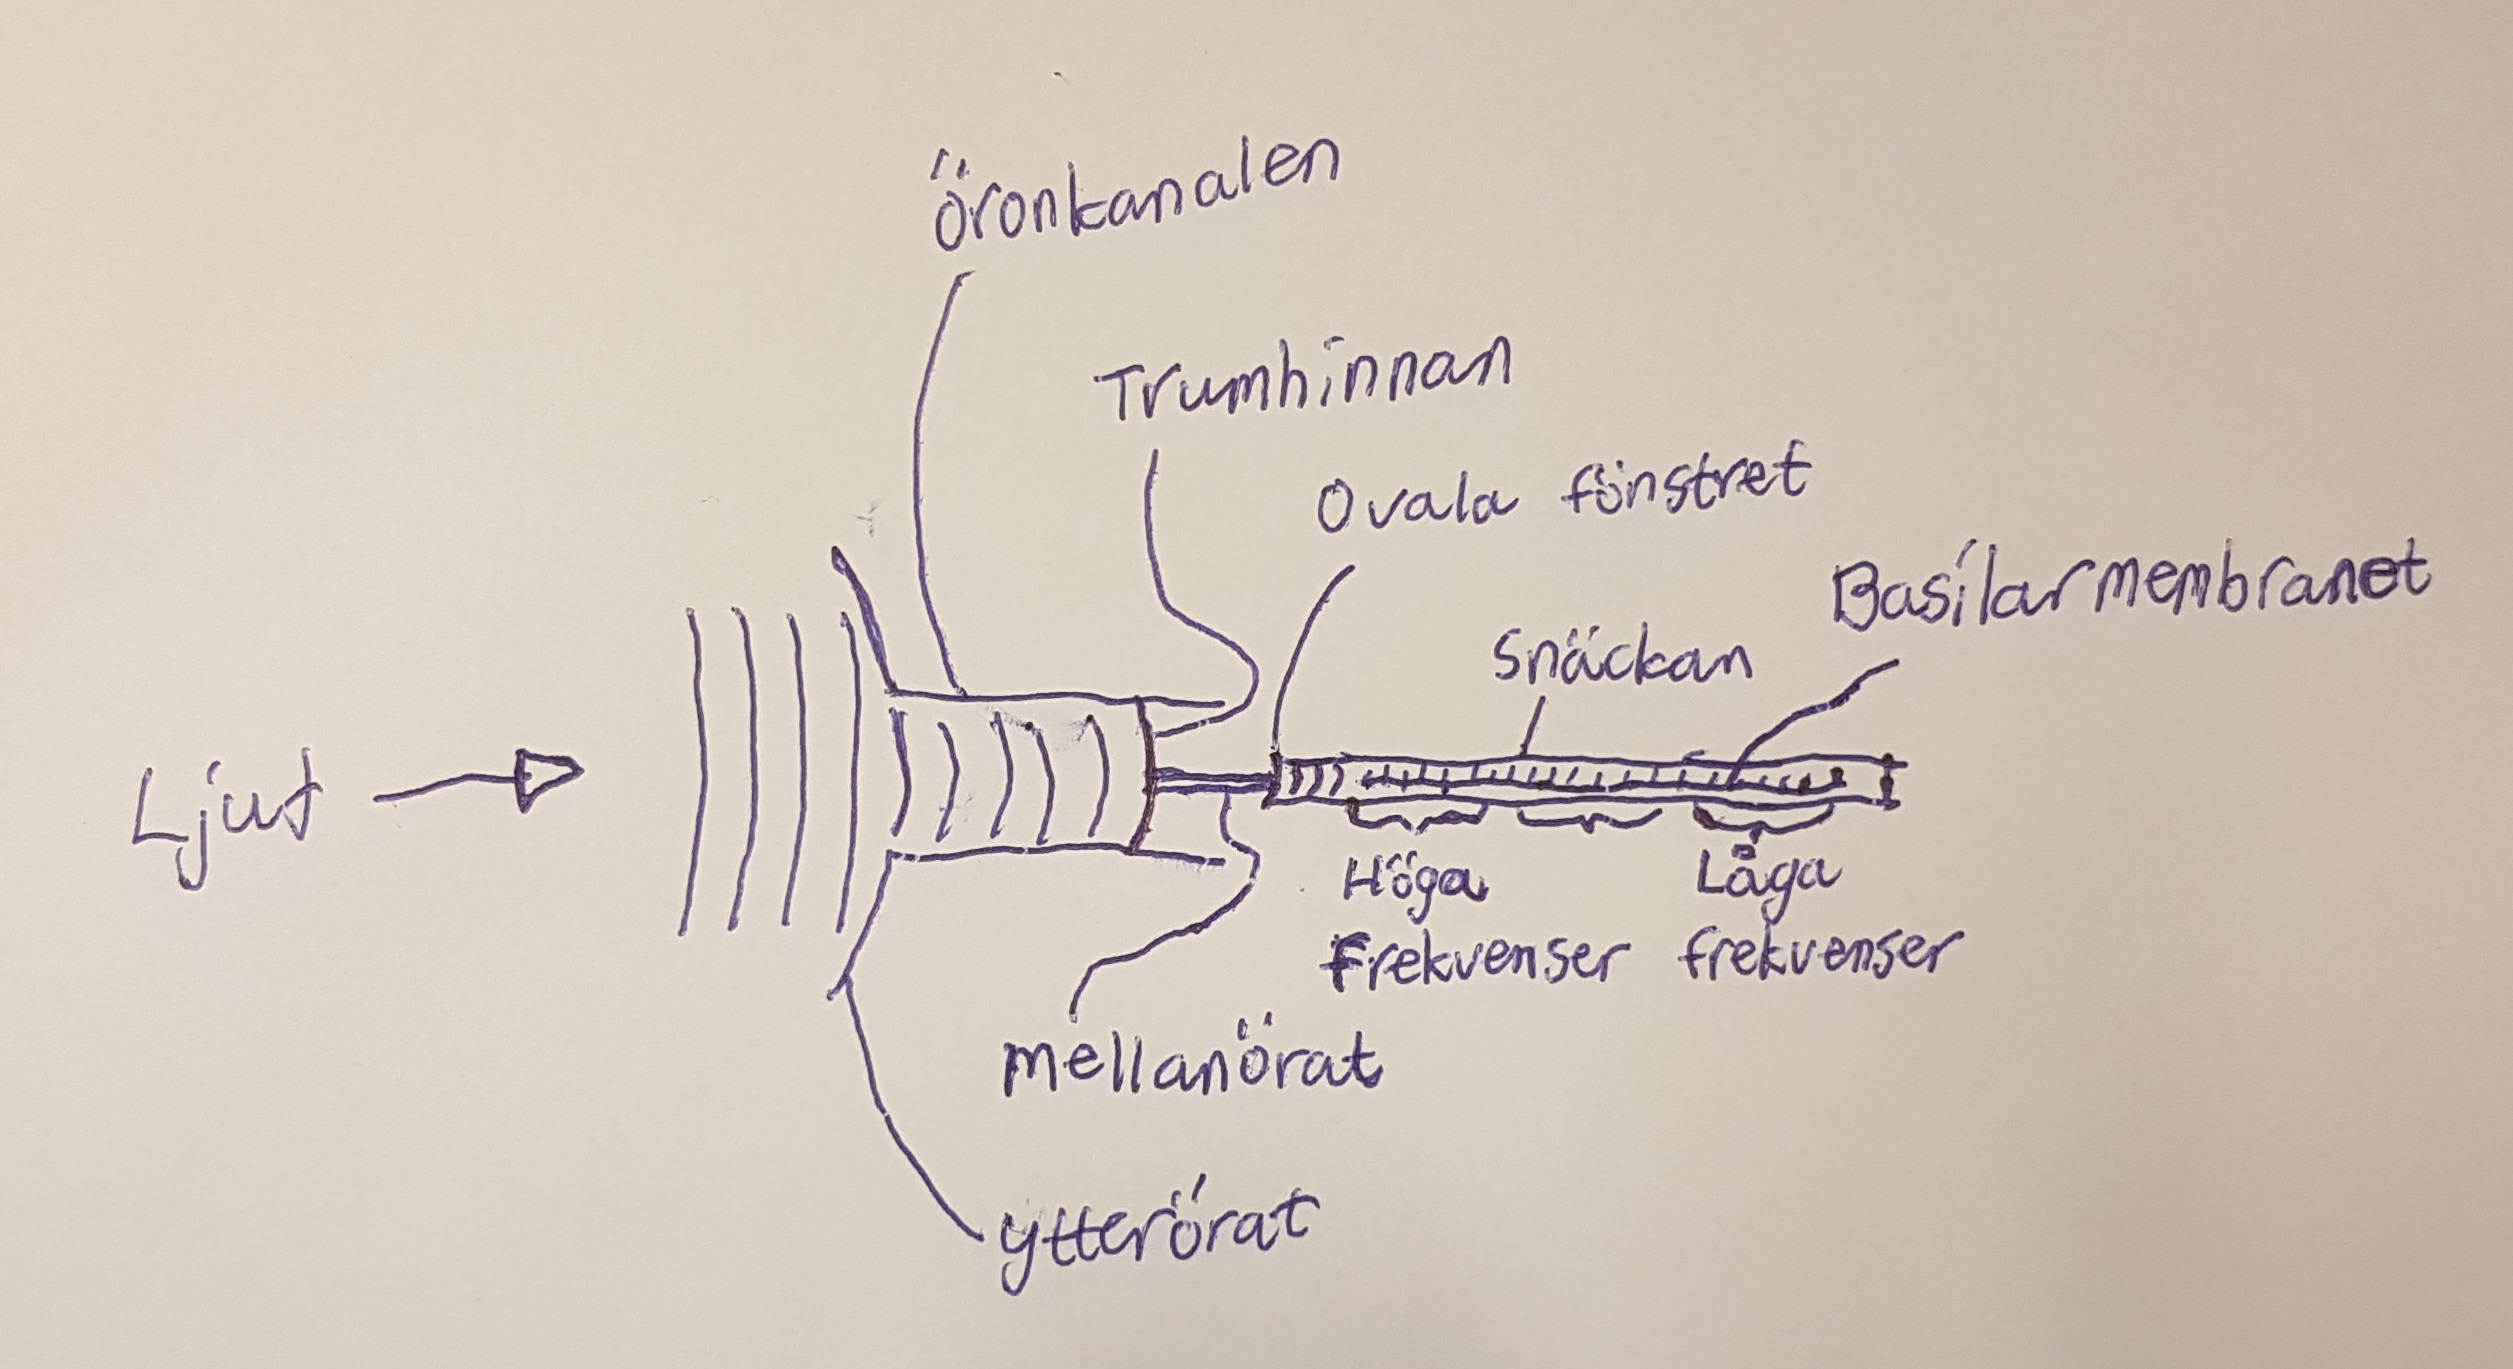 öronkanalen
Trumhinnan
Ovala fönstret
Basilarmembranet
Snäckan
Ljut
Höga
Frekvenser
Låga
frekvenser
mellanörat
ytterörat